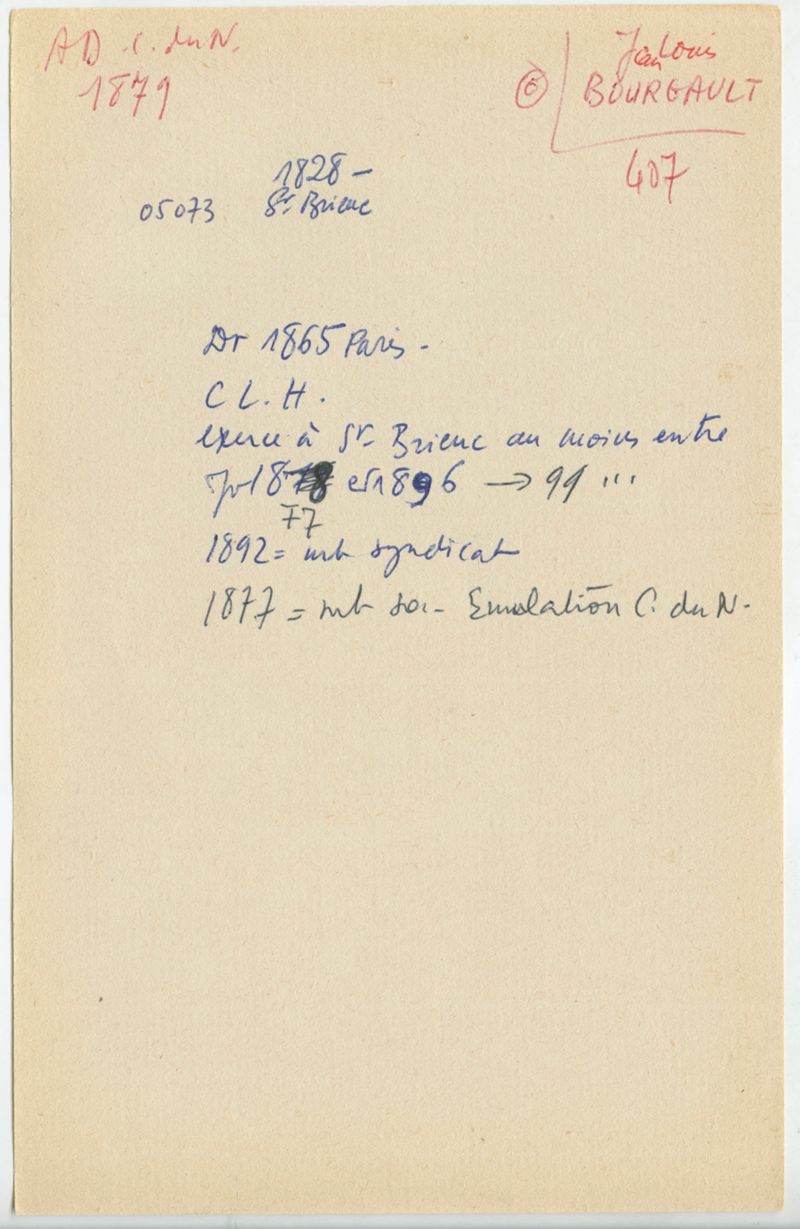 AD C. du N.
1879
Jean Louis
© BOURGAULT
407
1828 –
05073 St. Brieuc
Dr 1865 Paris -
C L. H.
exerce à St- Brieuc au moins entre
1878 et 1896 → 99 ...
77
1892 = mb syndicat
1877 = mb soc- Emulation C. du N-